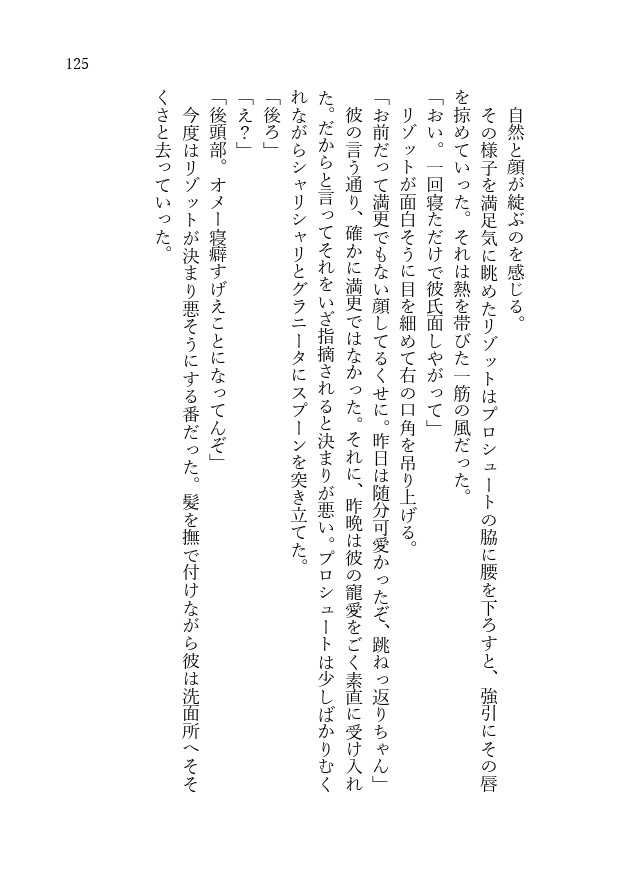 125
自然と顔が綻ぶのを感じる。
その様子を満足気に眺めたリゾットはプロシュートの脇に腰を下ろすと、強引にその唇
を掠めていった。それは熱を帯びた一筋の風だった。
「おい。一回寝ただけで彼氏面しやがって」
リゾットが面白そうに目を細めて右の口角を吊り上げる。
「お前だって満更でもない顔してるくせに。昨日は随分可愛かったぞ、跳ねっ返りちゃん」
彼の言う通り、確かに満更ではなかった。それに、昨晩は彼の寵愛をごく素直に受け入れ
た。だからと言ってそれをいざ指摘されると決まりが悪い。プロシュートは少しばかりむく
れながらシャリシャリとグラニータにスプーンを突き立てた。
「後ろ」
「え？」
「後頭部。オメー寝癖すげえことになってんぞ」
今度はリゾットが決まり悪そうにする番だった。髪を撫で付けながら彼は洗面所へそそ
くさと去っていった。